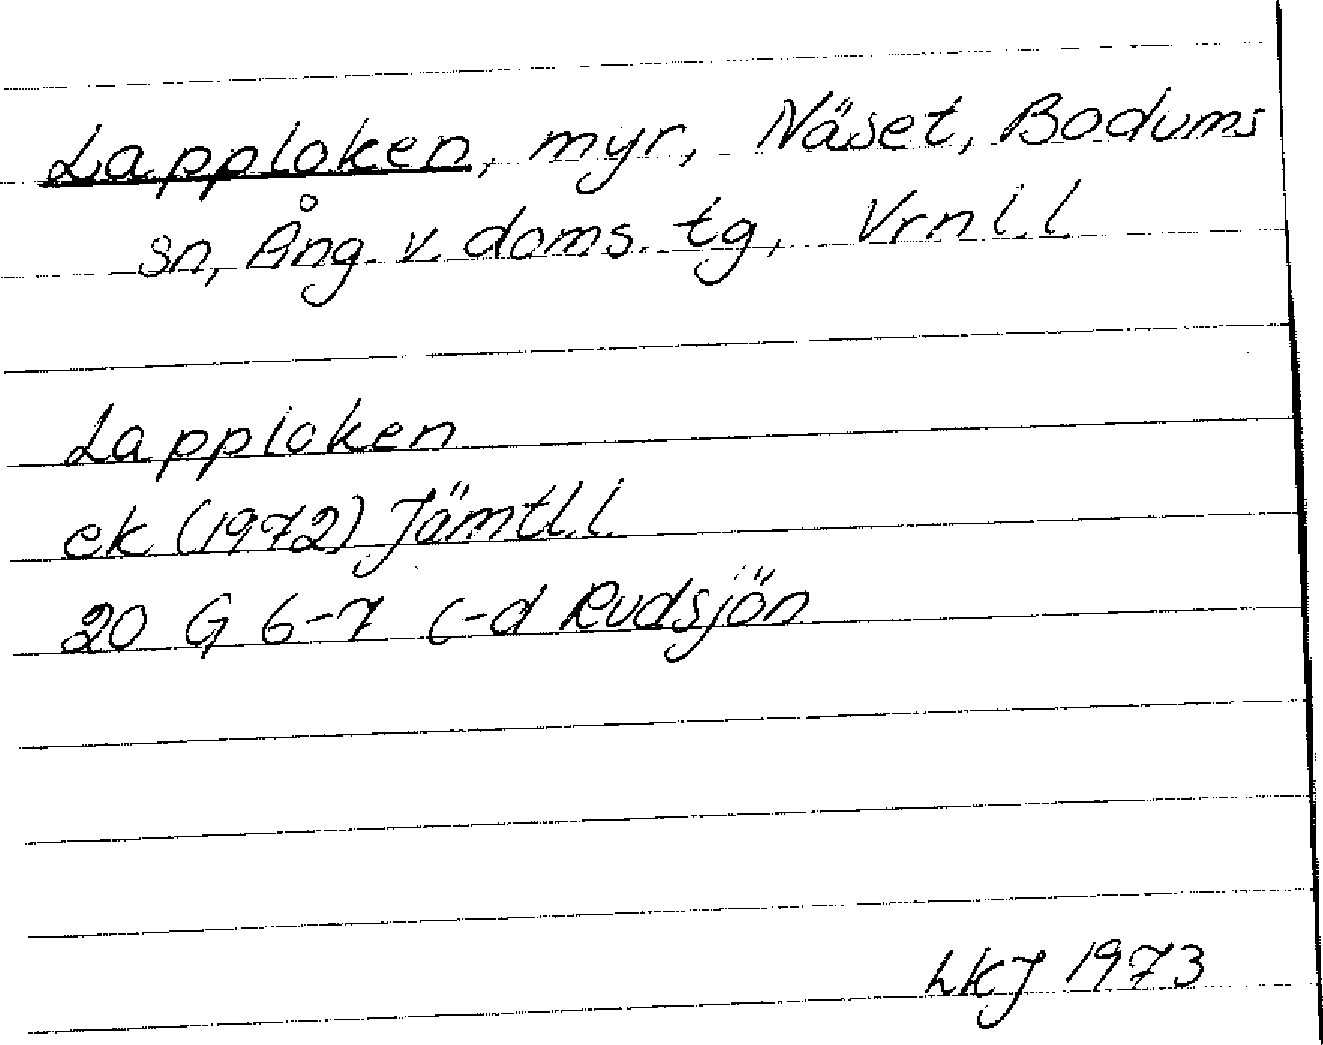 Lapploken, myr, Näset, Bodums
sn, Ång. v. doms. tg, Vrnl.l
Lapploken
ek (1972) Jämtl.l.
20 G 6-7 c-d Rudsjön
LKJ 1973